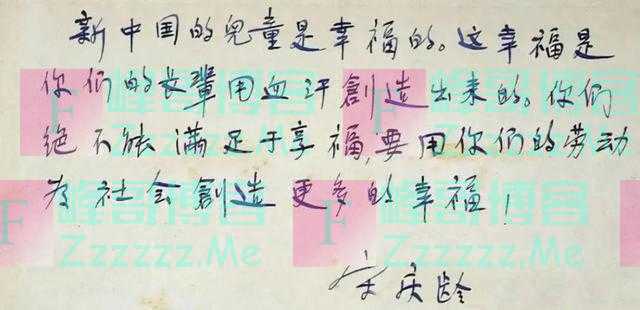 新中国的兒童是幸福的。这幸福是
你们的长輩用血汗創造出来的。你们
绝不能满足于享福,要用你们的劳动
为社会創造更多的幸福!
宋庆龄
F 峰哥博客
Zzzzzz.Me
F 峰哥博客
Zzzzzz.Me
F 峰哥博客
Zzzzzz.Me
F 峰哥博客
Zzzzzz.Me